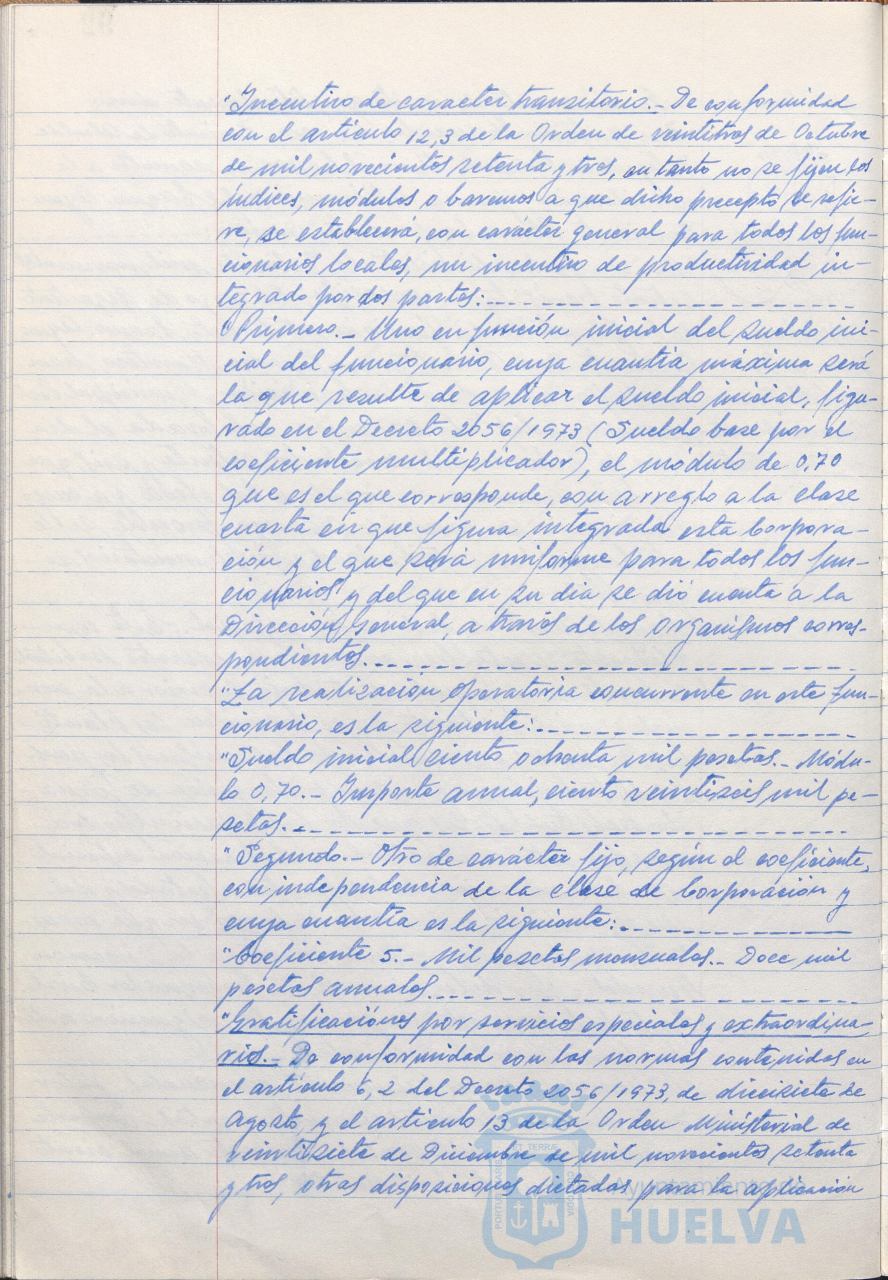 "Incentivo de caracter transitorio.- De conformidad
con el artículo 12,3 de la Orden de veintitres de Octubre
de mil novecientos setenta y tres, en tanto no se fijen los
índices, módulos o baremos a que dicho precepto se refie-
re, se establecerá, con carácter general para todos los fun-
cionarios locales, un incentivo de productividad in-
tegrado por dos partes:
Primero.- Uno en función inicial del sueldo ini-
cial del funcionario, cuya cuantía máxima será
la que resulte de aplicar el sueldo inicial, figu-
rado en el Decreto 2056/1973 (Sueldo base por el
coeficiente multiplicador), el módulo de 0,70
que es el que corresponde, con arreglo a la clase
cuarta en que figura integrada esta Corpora-
ción y el que será uniforme para todos los fun-
cionarios y del que en su dia se dió cuenta a la
Dirección General, a través de los Organismos corres-
pondientes.
"La realización operatoria concurrente en este fun-
cionario, es la siguiente:
"Sueldo inicial ciento ochenta mil pesetas.- Módu-
lo 0,70.- Importa anual, ciento veintiseis mil pe-
setas.
"Segundo.- Otro de carácter fijo, según el coeficiente,
con independencia de la clase de Corporación y
cuya cuantía es la siguiente:
"Coeficiente 5.- Mil pesetas mensuales.- Doce mil
pesetas anuales.
"Gratificaciónes por servicios especiales y extraordina-
rios.- De conformidad con las normas contenidas en
el artículo 6,2 del Decreto 2056/1973, de diecisiete de
Agosto, y el artículo 13 de la Orden Ministerial de
veintisiete de Diciembre de mil novecientos setenta
y tres, otras disposiciones dictadas para la aplicación
Ayuntamiento
HUELVA